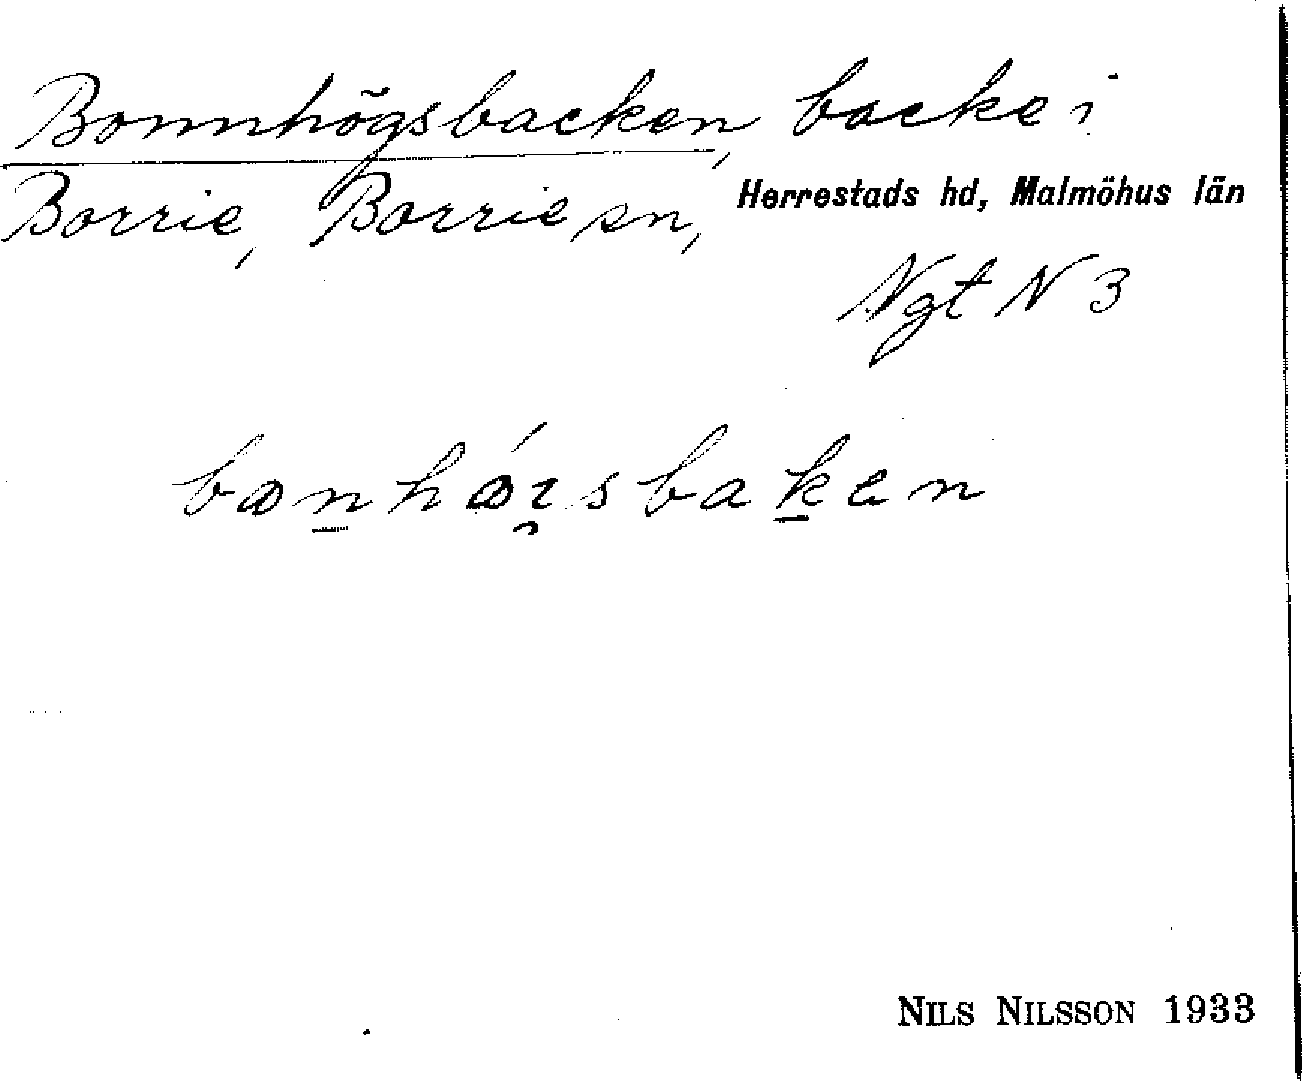 Bonnhögsbacken, backe i
Borrie, Borrie sn, Herrestads hd, Malmöhus län
Ngt N 3
NILS NILSSON 1933